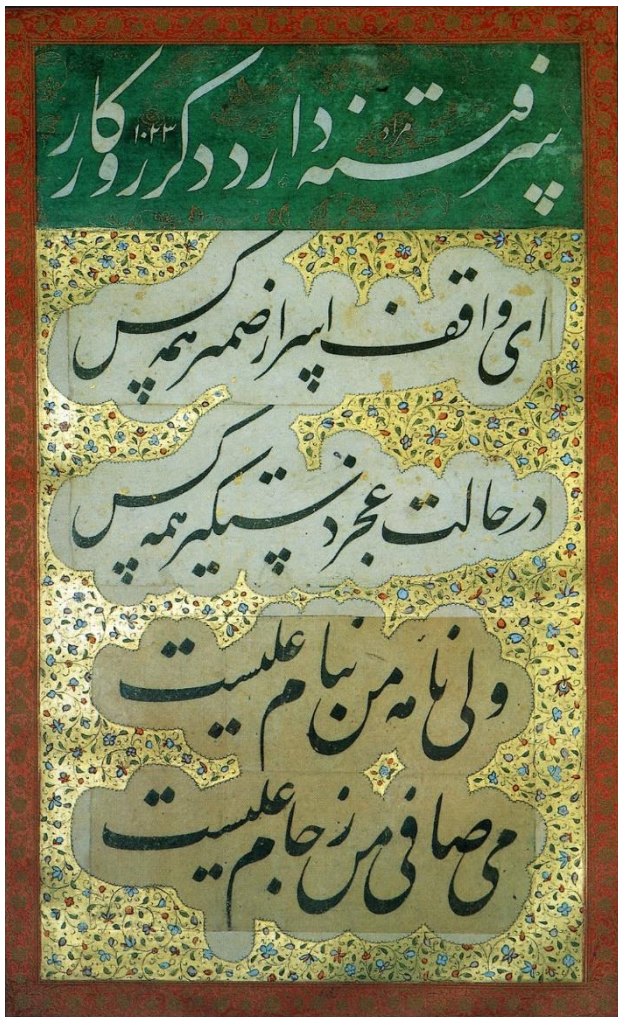 سر فتنه دارد دکر روزکار
مراد
۱۰۲۳
ای واقف اسرار ضمیر همه کس
در حالت عجز دستکیر همه کس
ولی نامهٔ من بنام علیست
می صافی من ز جام علیست